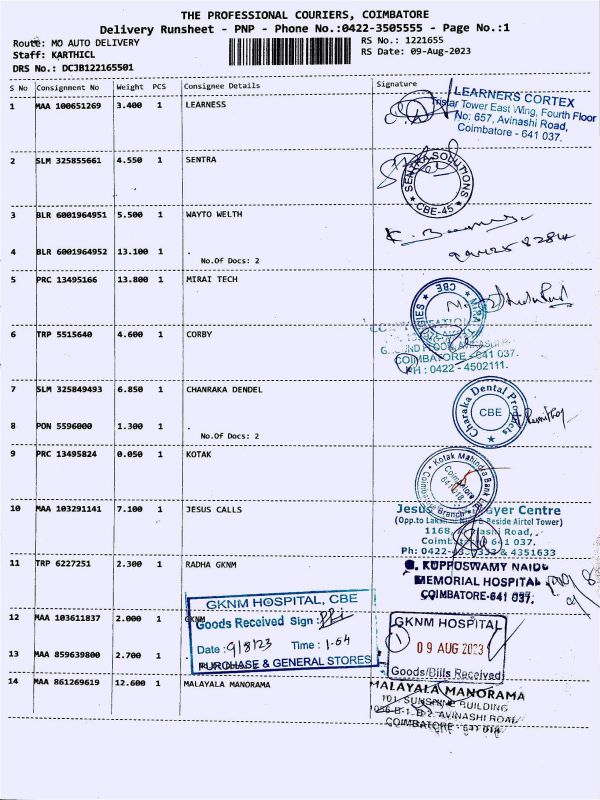 THE PROFESSIONAL COURIERS, COIMBATORE
Delivery Runsheet - PNP - Phone No.:0422-3505555 - Page No.:1
Route: MO AUTO DELIVERY
RS No.: 1221655
Staff: KARTHICL
RS Date: 09-Aug-2023
DRS No.: DCJB122165501
S No Consignment No Weight PCS Consignee Details Signature
1 MAA 100651269 3.400 1 LEARNESS
LEARNERS CORTEX
Tower East Wing, Fourth Floor
No: 657, Avinashi Road,
Coimbatore - 641 037.
2 SLM 325855661 4.550 1 SENTRA
SENTRA SOLUTIONS
* CBE-45 *
3 BLR 6001964951 5.500 1 WAYTO WELTH
4 BLR 6001964952 13.100 1 .
No.Of Docs: 2
5 PRC 13495166 13.800 1 MIRAI TECH
CBE
6 TRP 5515640 4.600 1 CORBY
COIMBATORE - 641 037.
PH : 0422 - 4502111.
7 SLM 325849493 6.850 1 CHANRAKA DENDEL
Charaka Dental Products
CBE
8 PON 5596000 1.300 1 .
No.Of Docs: 2
9 PRC 13495824 0.050 1 KOTAK
Kotak Mahindra Bank
Coimbatore
641 018
Coimbatore Branch
10 MAA 103291141 7.100 1 JESUS CALLS
Jesus Prayer Centre
Beside Airtel Tower)
1168, Road,
641 037.
Ph: 0422- & 4351633
11 TRP 6227251 2.300 1 RADHA GKNM
G. KUPPUSWAMY NAIDU
MEMORIAL HOSPITAL
COIMBATORE-641 037.
12 MAA 103611837 2.000 1 GKNM
GKNM HOSPITAL, CBE
Goods Received Sign :
Date : 9/8/23 Time : 1-54
PURCHASE & GENERAL STORES
GKNM HOSPITAL
1
09 AUG 2023
Goods/Bills Received
13 MAA 859639800 2.700 1
14 MAA 861269619 12.600 1 MALAYALA MANORAMA
MALAYALA MANORAMA
101, SUNSHINE BUILDING
1056-B-1, B-2, AVINASHI ROAD
COIMBATORE - 641 018